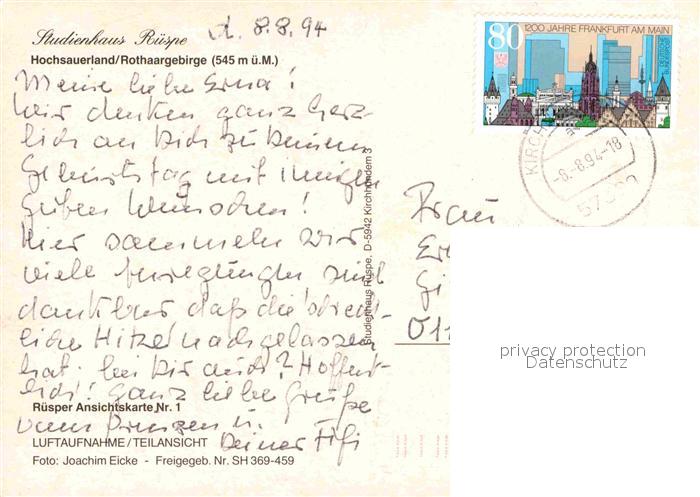 Studienhaus Rüspe
d. 8.8.94
Hochsauerland/Rothaargebirge (545 m ü.M.)
Meine liebe Erna!
Wir denken ganz herz-
lich an Dich zu Deinem
Geburtstag mit innigen
guten Wünschen!
Hier sammeln wir
viele Anregungen sind
dankbar daß die schreck-
liche Hitze nachgelassen
hat. bei Dir auch? Hoffent-
lich! Ganz liebe Grüße
vom Prinzen u.
Deiner Fifi
Rüsper Ansichtskarte Nr. 1
LUFTAUFNAHME/TEILANSICHT
Foto: Joachim Eicke - Freigegeb. Nr. SH 369-459
Studienhaus Rüspe, D-5942 Kirchhundem 3
80
1200 JAHRE FRANKFURT AM MAIN
DEUTSCHE BUNDESPOST
KIRCH
-8.-8.94-18
Frau
Er
Gi
011
privacy protection
Datenschutz